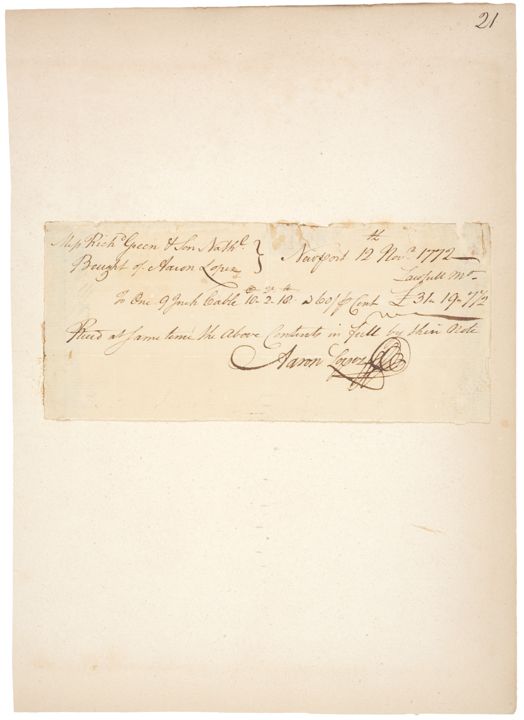 21
Mess Richd Green & Son Nathl } Newport 12th Novr 1772
Bought of Aaron Lopez
Lawfull My
To One 9 Inch Cable 10. 2. 18 a 60/ ⅌ Cent £31. 19. 7 1/2
Recd at same time the above Contents in full by their Note
Aaron Lopez